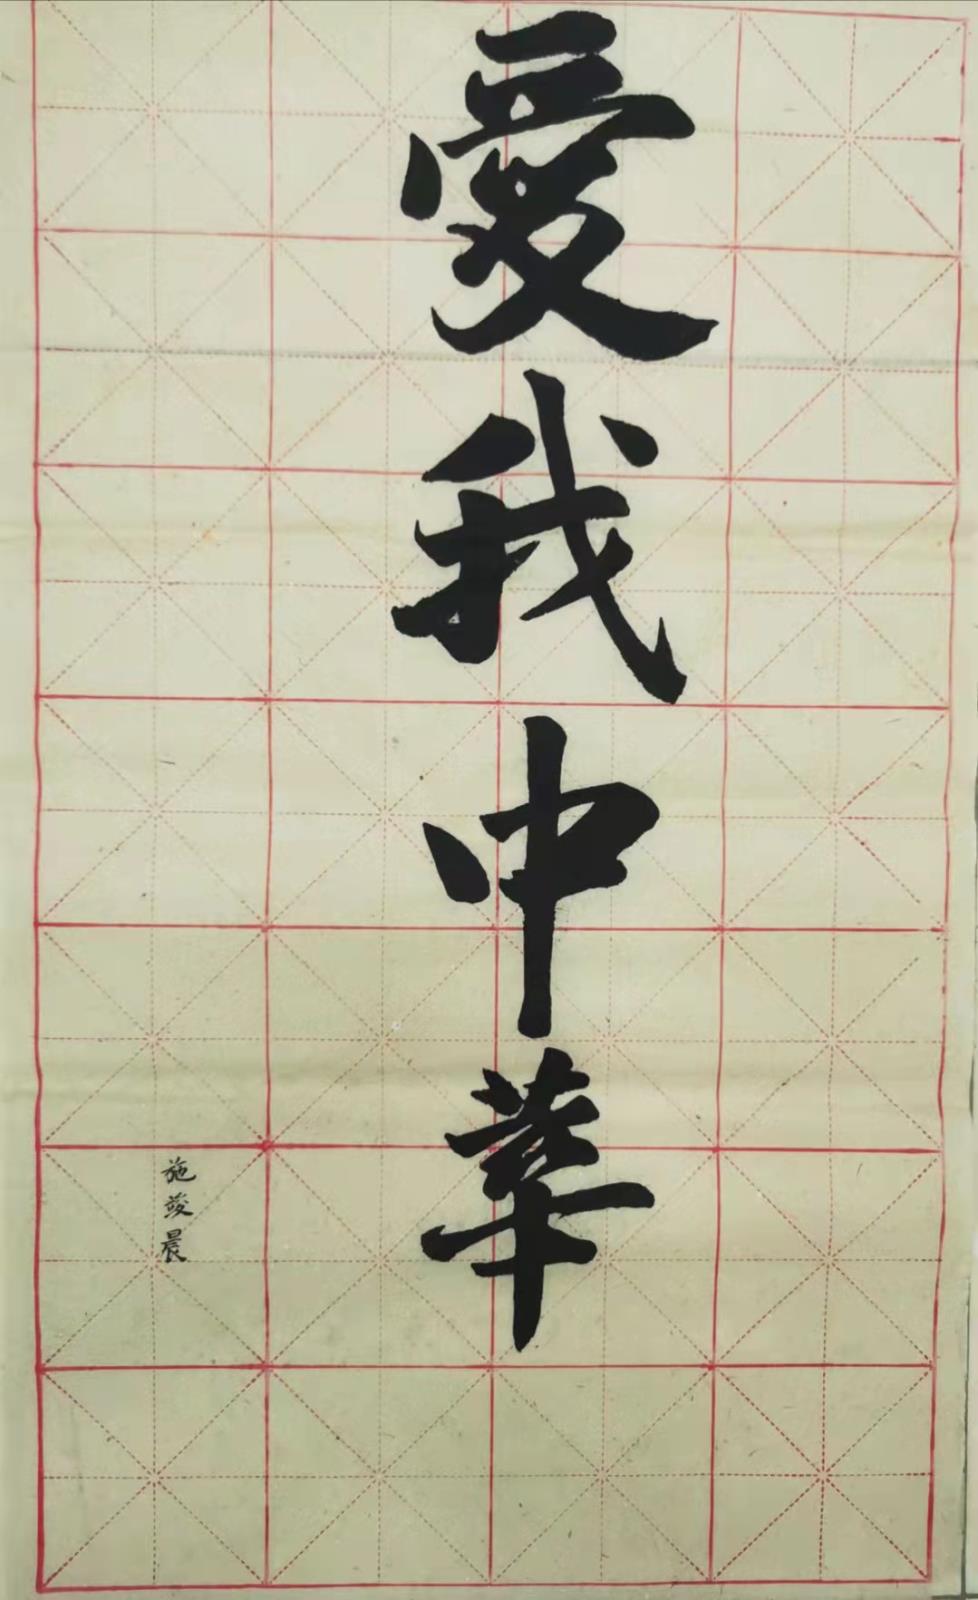 愛我中華
施竣晨